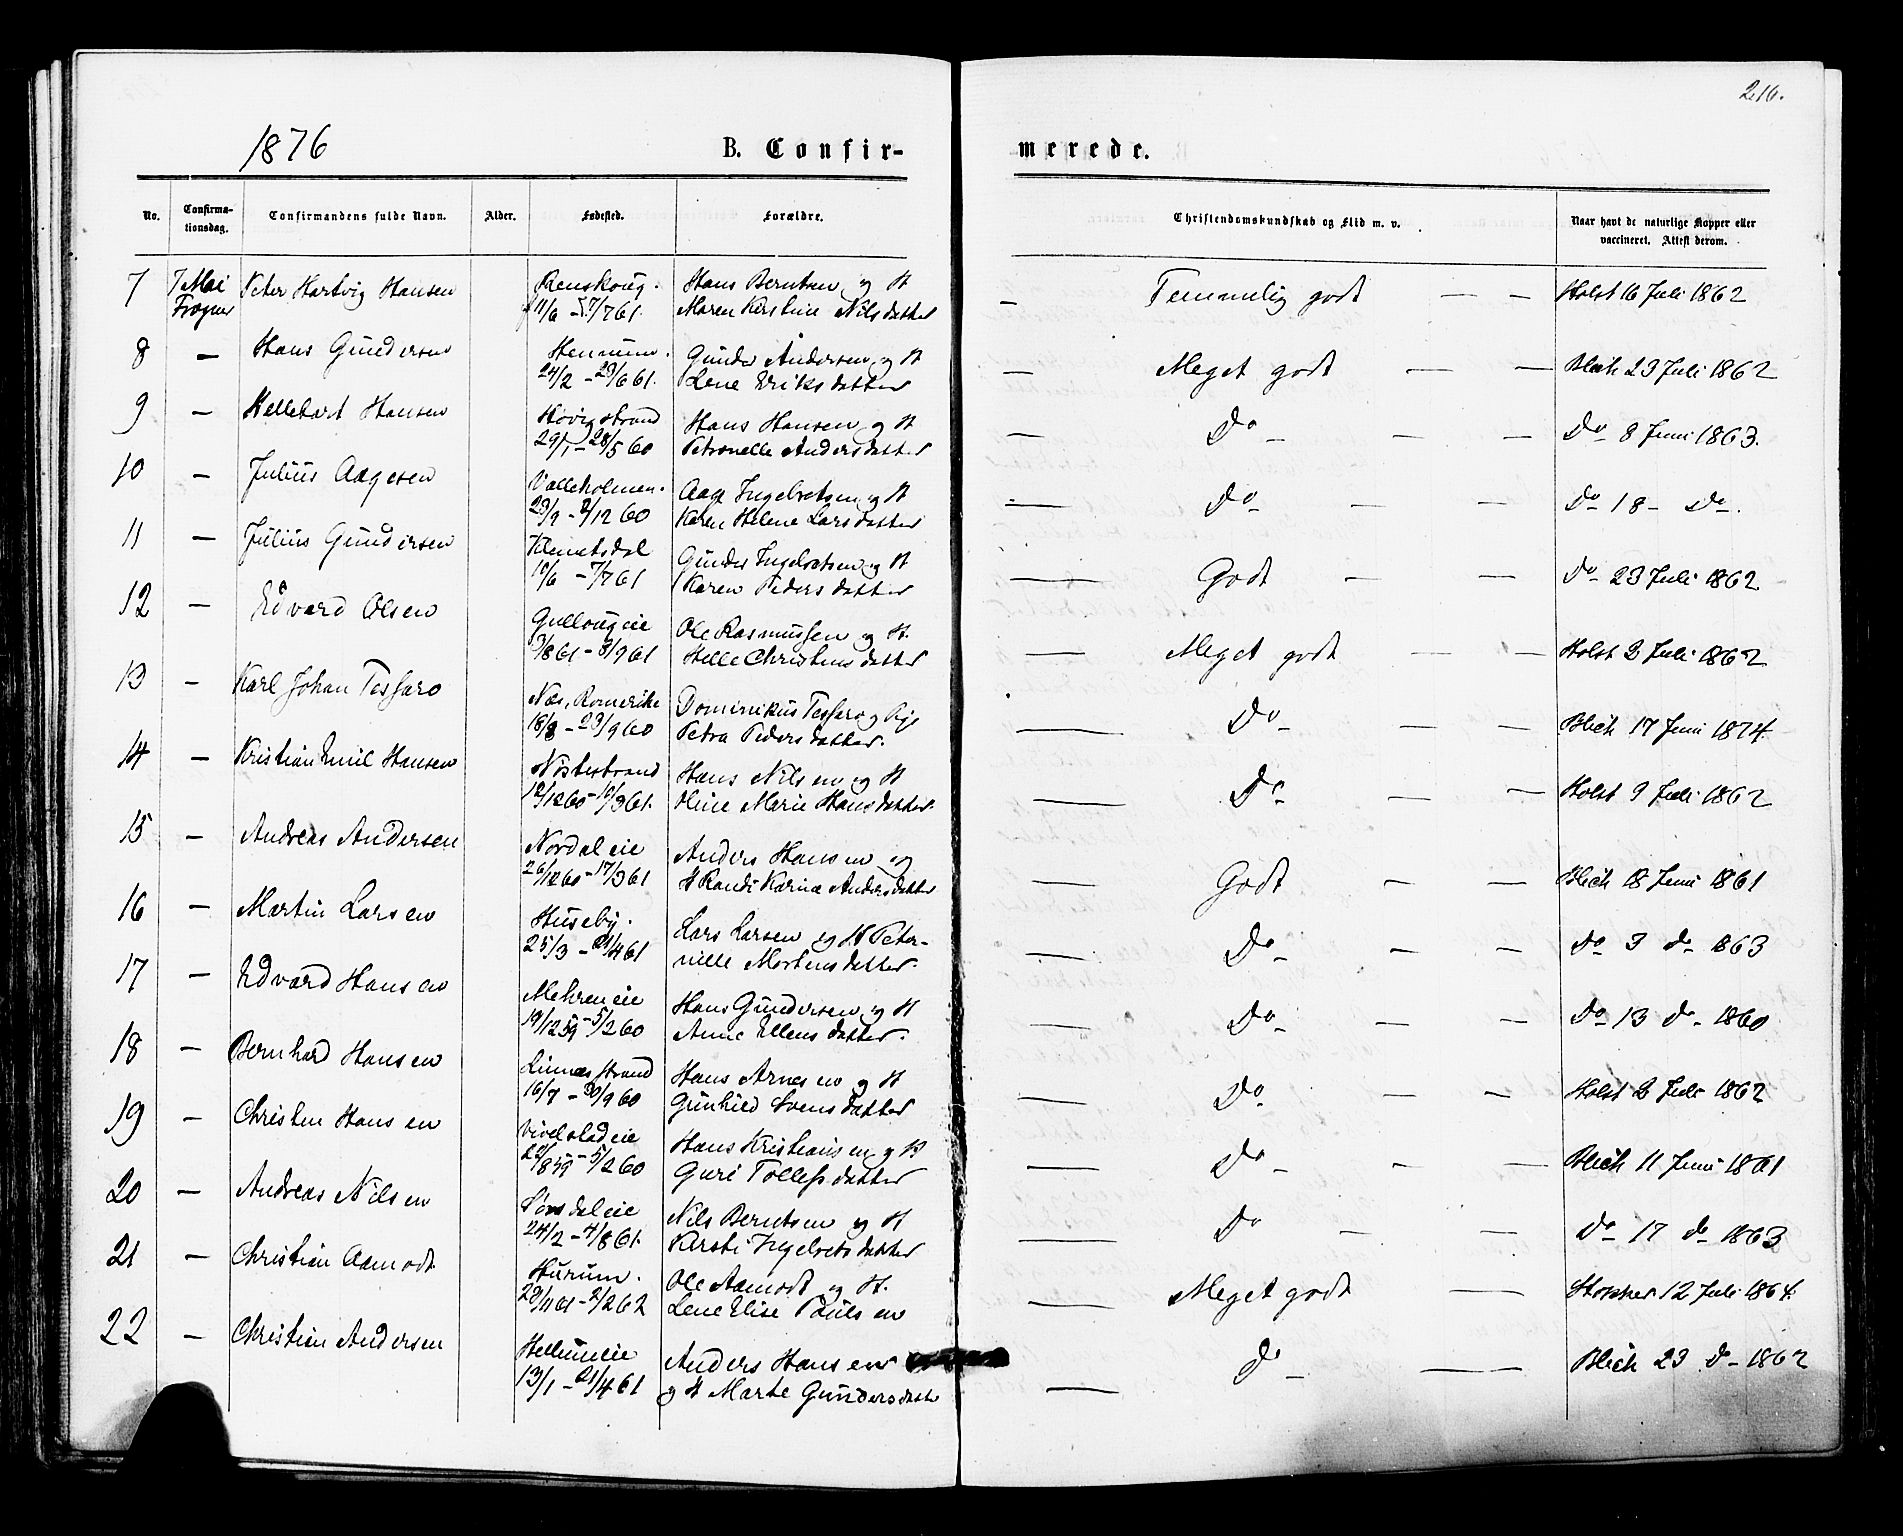 216.
1876 B. Confir- merede.
No. Confirma-tionsdag. Confirmandens fulde Navn. Alder. Fødested. Forældre. Christendomskundskab og Flid m. v. Naar havt de naturlige Kopper eller vaccineret. Attest derom.
7 7 Mai Peter Hartvig Hansen Renskoug. Hans Berntsen og H — Temmelig godt — — Holst 16 Juli 1862
Frogner f 11/6 - 7/7 61. Maren Kirstine Nilsdatter
8 — Hans Gundersen Hennum. Gunder Andersen og H — Meget godt — — Blich 23 Juli 1862
24/2 - 23/6 61. Lene Eriksdatter
9 — Hellebart Hansen Høvigstrand Hans Hansen og H — Do — — Do 8 Juni 1863.
29/1 - 28/5 60 Petronelle Andersdatter
10 — Julius Aagesen Valleholmen. Aage Ingebretsen og H — Do — — Do 18 - Do.
23/9 - 2/12 60 Karen Helene Larsdatter
11 — Julius Gundersen Klemetsdal Gunder Ingebretsen og H — Godt — — Do 23 Juli 1862
10/6 - 7/7 61 Karen Pedersdatter
12 — Edvard Olsen Gullougeie Ole Rasmussen og H. — Meget godt — — Holst 2 Juli 1862
3/8 61 - 8/9 61 Helle Christensdatter
13 — Karl Johan Tessaro Næs, Romerike Dominikus Tessaro og Pige — Do — — Blich 17 Juni 1874.
18/8 - 23/9 60 Petra Pedersdatter.
14 — Kristian Emil Hansen Nøstestrand Hans Nilsen og H — Do — — Holst 9 Juli 1862
12/12 60 - 10/3 61. Oline Marie Hansdatter
15 — Andreas Andersen Nordaleie Anders Hansen og — Godt — — Blich 18 Juni 1861
26/12 60 - 17/3 61 H Randi Karine Andersdatter
16 — Martin Larsen Huseby. Lars Larsen og H Peter- — Do — — Do 3 do 1863
25/3 - 21/4 61 nille Mortensdatter.
17 — Edvard Hansen Mehreneie Hans Gundersen og H — Do — — Do 13 do 1860
19/12 59 - 5/2 60 Anne Ellensdatter.
18 — Bernhard Hansen Linnesstrand Hans Arnesen og H — Do — — Holst 2 Juli 1862
16/7 - 30/9 60 Gunhild Svensdatter
19 — Christen Hansen Vivelstadeie Hans Kristiansen og H — Do — — Blich 11 Juni 1861
22/8 59 - 5/2 60 Guri Tollefsdatter
20 — Andreas Nilsen Sørsdaleie Nils Berntsen og H — Do — — Do 17 do 1863
24/2 - 4/8 61. Kirsti Ingebretsdatter
21 — Christian Aamodt Hurum. Ole Aamodt og H. — Meget godt — — 12 Juli 1864.
28/11 61 - 2/2 62 Lene Elise Paulsen
22 — Christian Andersen Hellumeie Anders Hansen — Do — — Blich 23 Do 1862
13/1 - 21/4 61 og H Marte Gundersdatter